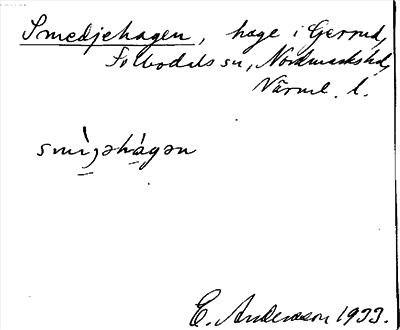 Smedjehagen, hage i Gerrud,
Silbodals sn, Nordmarks hd,
Värml. l.
smìɟəhágən
E. Andersson 1933.